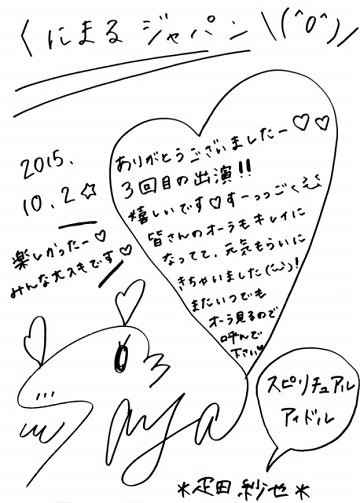 くにまるジャパン \(^o^)/
2015.
10.2☆
楽しかったー♡
みんな大スキです♡
ありがとうございましたー♡♡
3回目の出演!!
嬉しいです♡すーっっごくえぇ
皆さんのオーラもキレイに
なってて、元気もらいに
きちゃいました(^ω^)!
またいつでも
オーラ見るので
呼んで
下さい♥
Saya
スピリチュアル
アイドル
*疋田紗也*